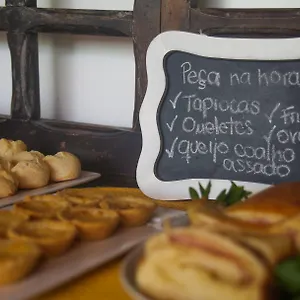 Peça na hora
✓ Tapiocas
✓ Omeletes
✓ queijo coalho
assado